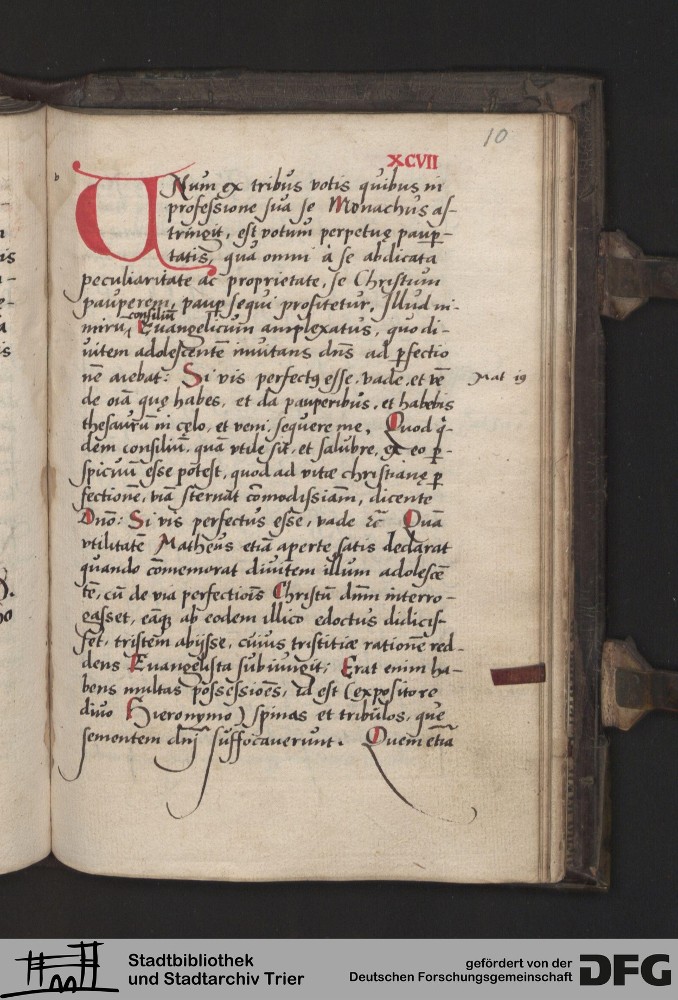 10
XCVII
VNum ex tribus votis quibus in
professione sua se Monachus as-
tringit, est votum perpetuę paup̄-
tatis, qua omni à se abdicata
peculiaritate ac proprietate, se Christum
pauperem, paup̄ sequi profitetur. Illud ni-
consiliū
mirū, Euangelicum amplexatus, quo di-
uitem adolescentē inuitans dn̄s ad ꝑfectio
nē aiebat: Si vis perfectꝰ esse, vade, et vē
Mat 19
de oīa quę habes, et da pauperibus, et habebis
thesaurū in cęlo, et veni, sequere me. Quod q̇-
dem consiliū, quā vtile sit, et salubre, ex eo ꝑ-
spicuū esse potest, quod ad vitæ christianę ꝑ
fectionē, viā sternat cōmodissimā, dicente
Dnō: Si vis perfectus esse, vade ⁊c̄ Quā
vtilitatē Matheus etiā aperte satis declarat
quando cōmemorat diuitem illum adolescē
tē, cū de via perfectiōis Christū dnm̄ interro-
gasset, eāq; ab eodem illico edoctus didicis-
set, tristem abijsse, cuius tristitiæ rationē red-
dens Euangelista subiungit; Erat enim ha-
bens multas possessiōes, id est (expositore
diuo Hieronymo) spinas et tribulos, quę
sementem dn̄j suffocauerunt. Quem etiā
Stadtbibliothek
und Stadtarchiv Trier
gefördert von der
Deutschen Forschungsgemeinschaft
DFG